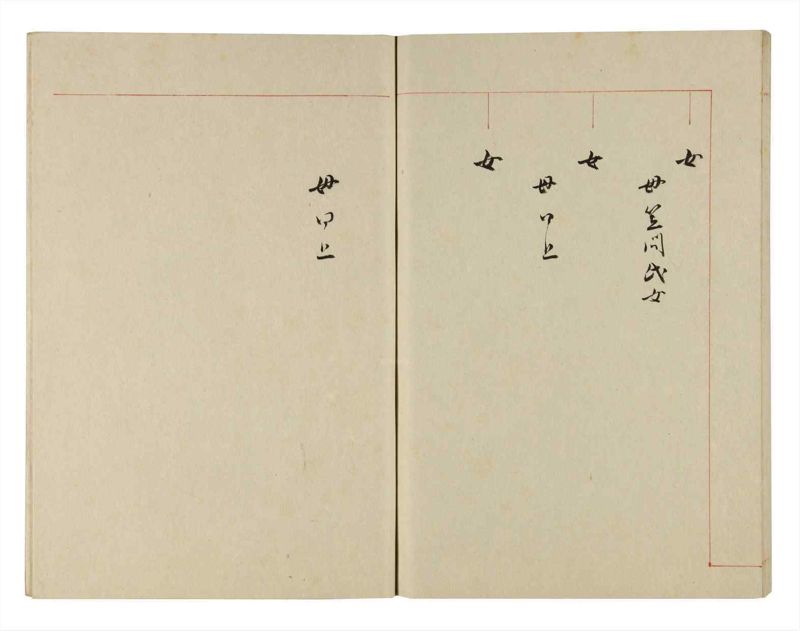 女
母笠間氏女
女
母同上
女
母同上